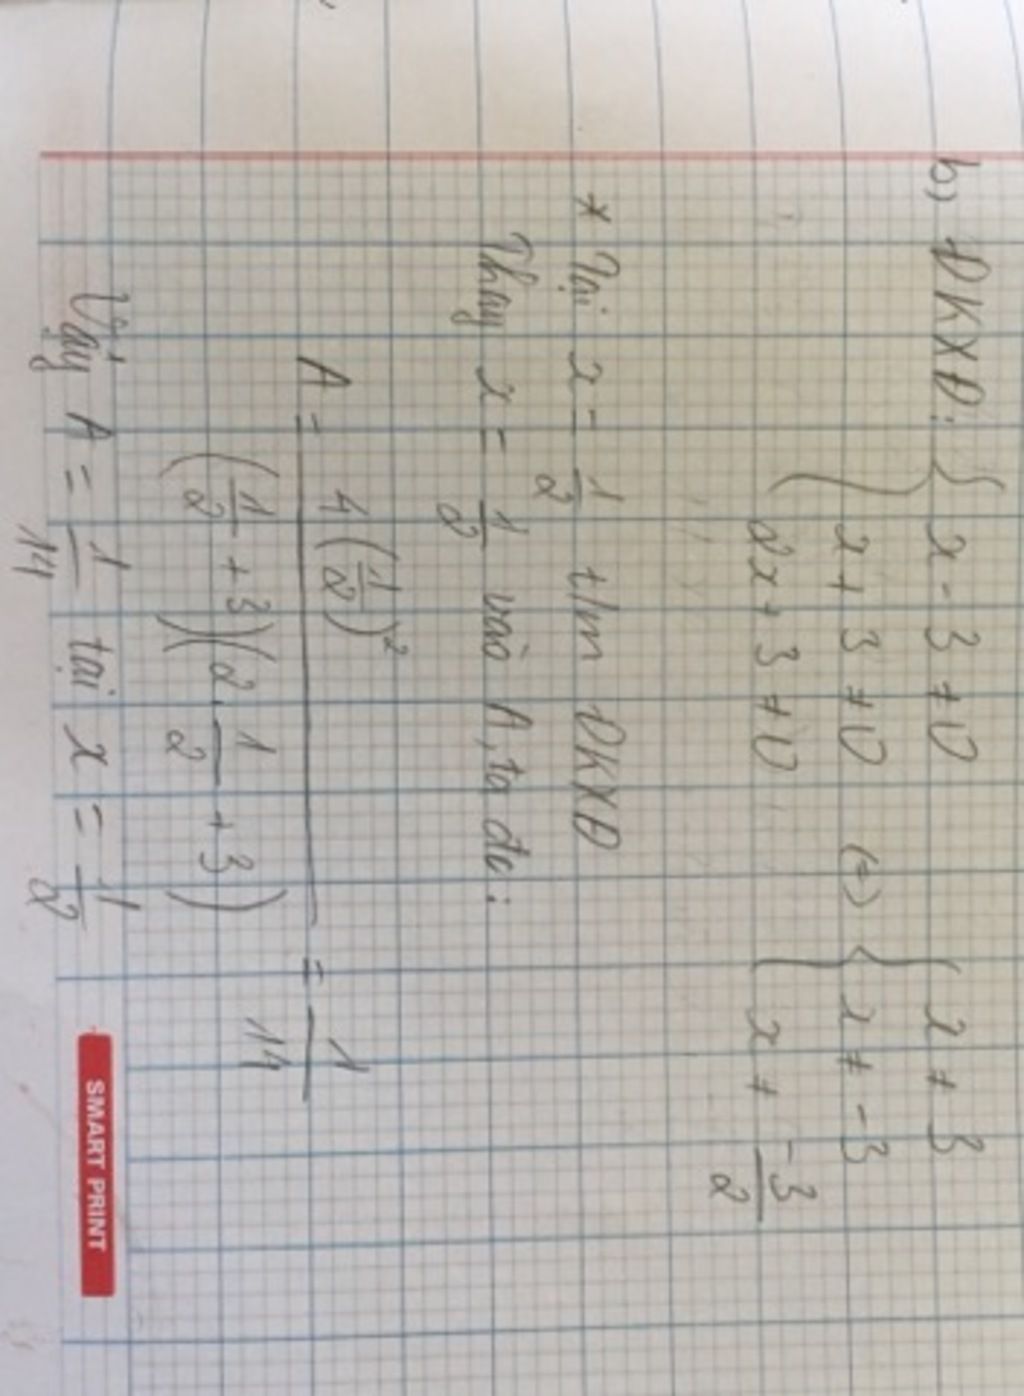 b) ĐKXĐ: { x - 3 ≠ 0
x + 3 ≠ 0
2x + 3 ≠ 0
(=) { x ≠ 3
x ≠ -3
x ≠ -3/2
* Tại x = 1/2 t/m ĐKXĐ
Thay x = 1/2 vào A, ta đc:
A = 4(1/2)² / (1/2 + 3)(2.1/2 + 3) = 1/14
Vậy A = 1/14 tại x = 1/2
SMART PRINT